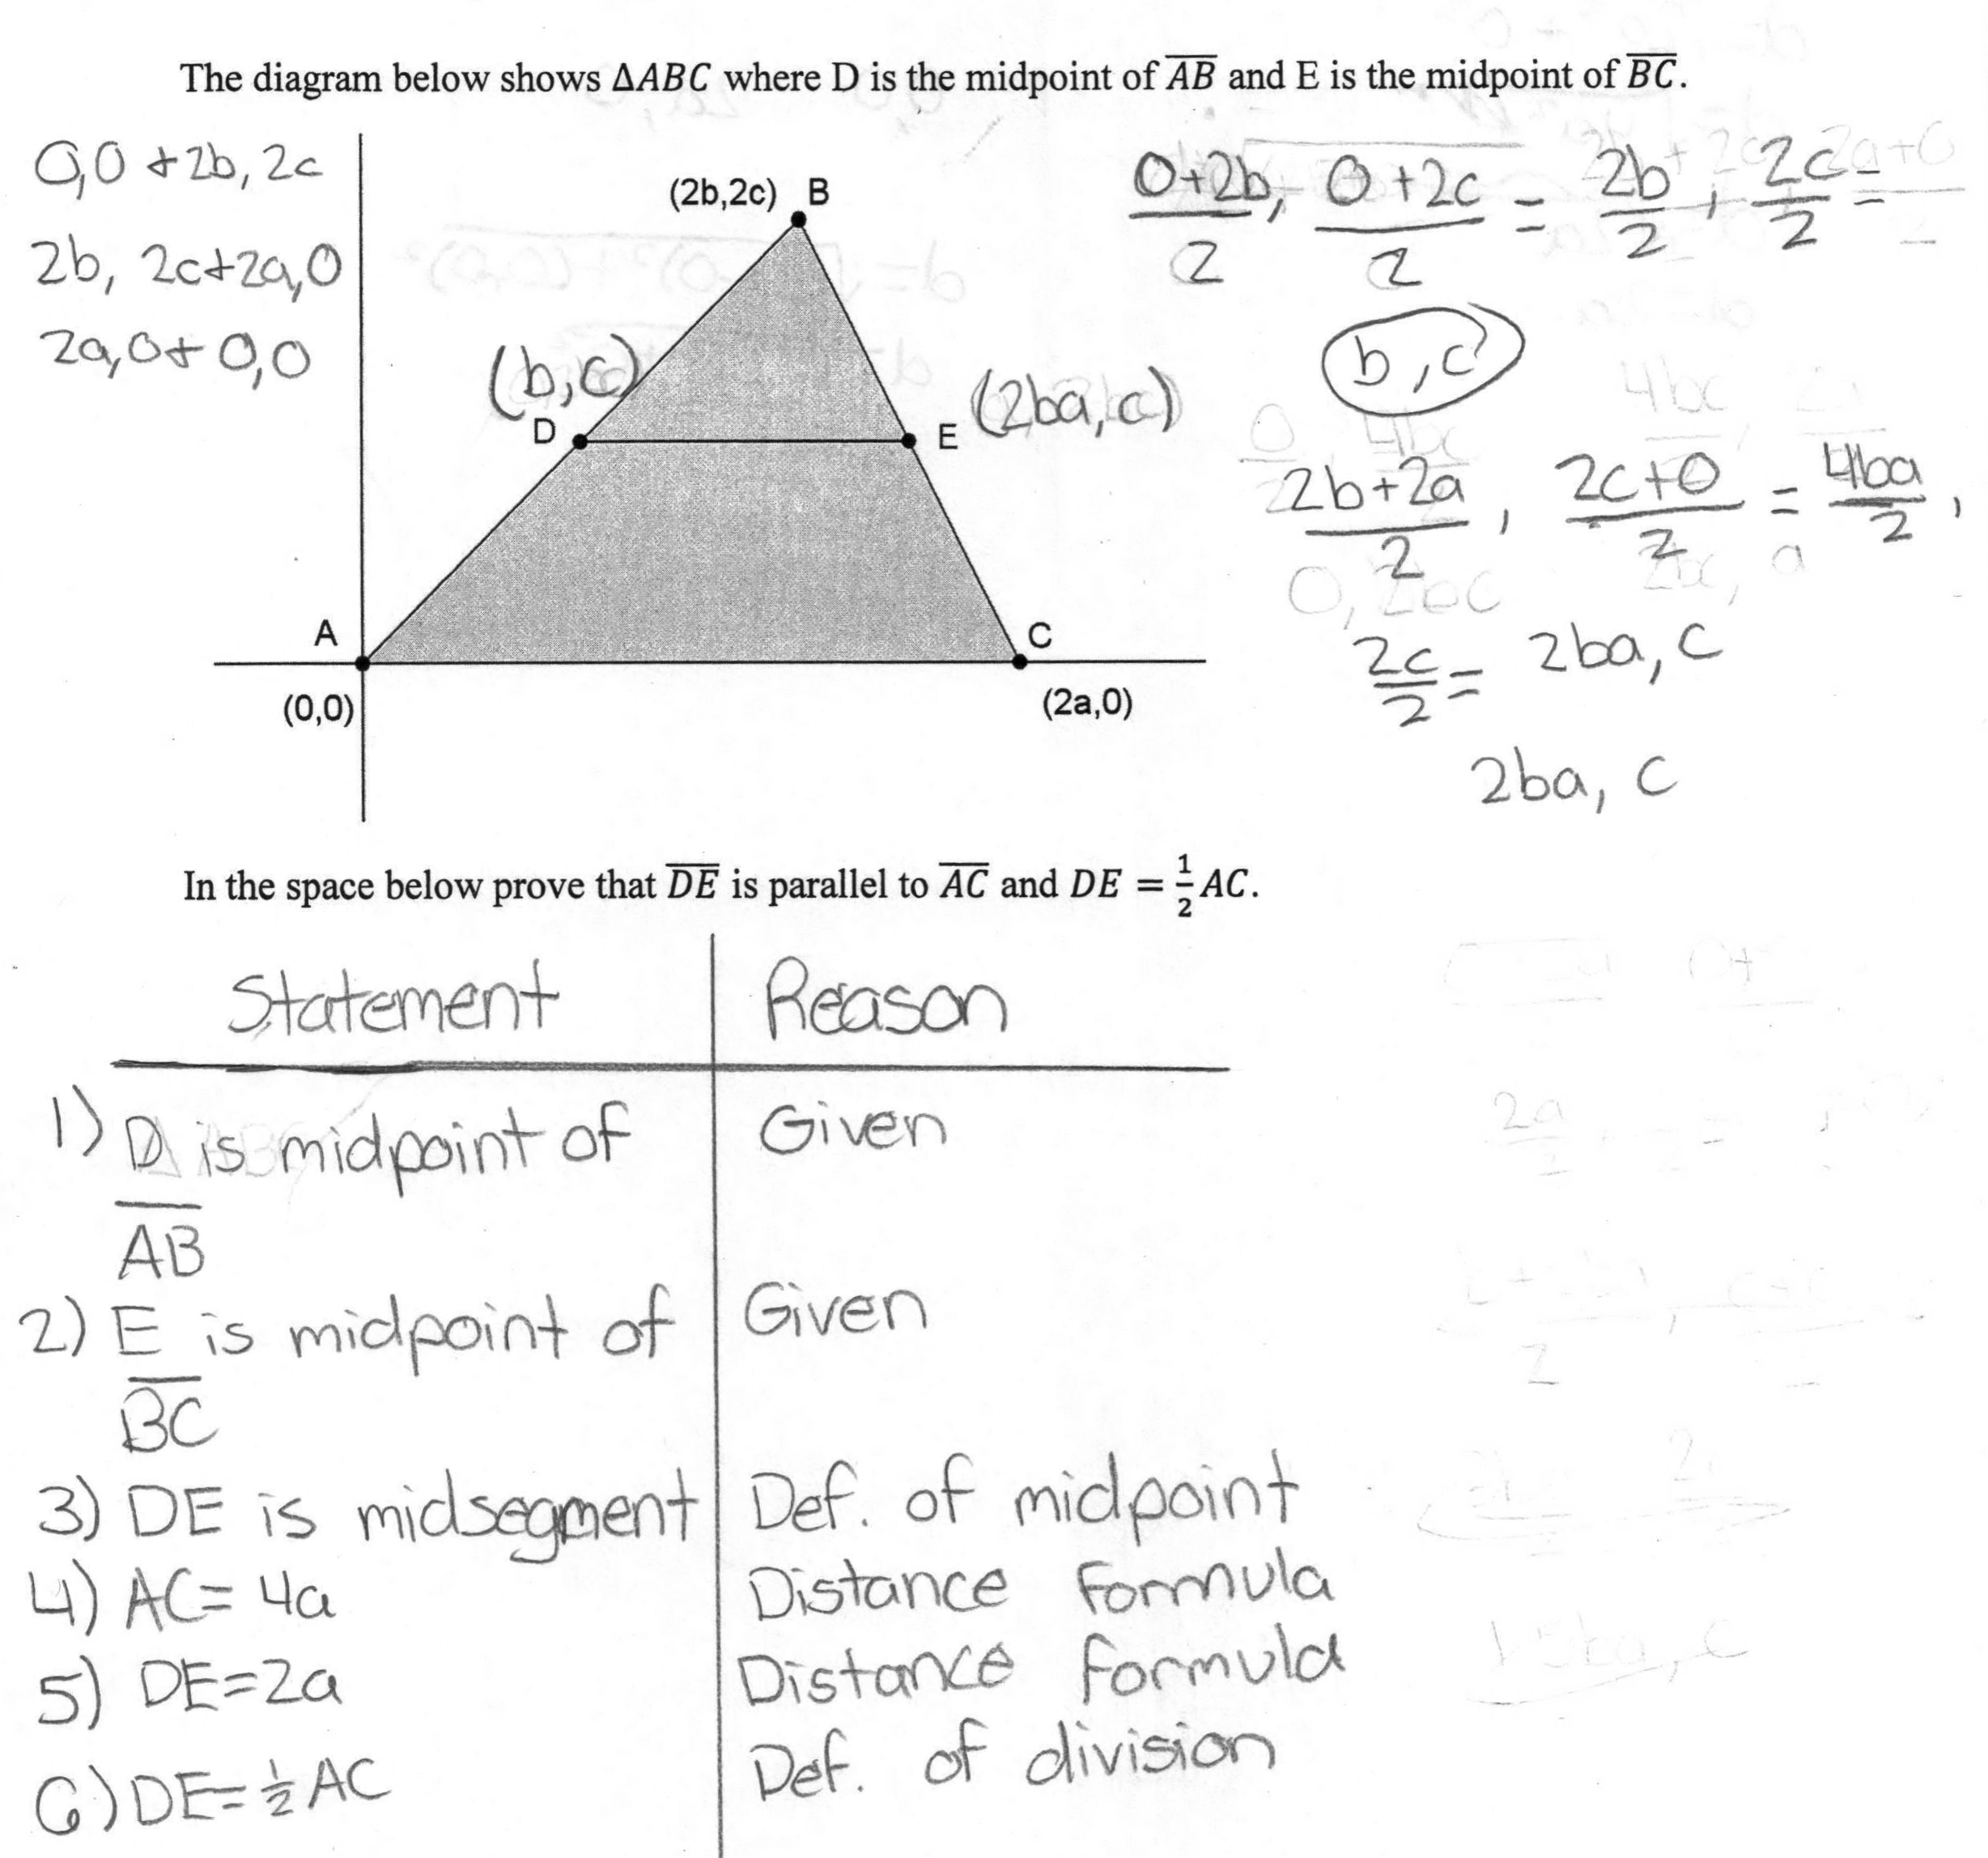 The diagram below shows ΔABC where D is the midpoint of AB and E is the midpoint of BC.
0,0 + 2b, 2c
2b, 2c+2a,0
2a,0+ 0,0
(2b,2c) B
(b,c)
D
E
(2ba, c)
A
(0,0)
C
(2a,0)
0+2b/2, 0+2c/2 = 2b/2, 2c/2 =
b, c
2b+2a/2, 2c+0/2 = 4ba/2,
2c/2 = 2ba, c
2ba, c
In the space below prove that DE is parallel to AC and DE = 1/2 AC.
Statement Reason
1) D is midpoint of Given
AB
2) E is midpoint of Given
BC
3) DE is midsegment Def. of midpoint
4) AC= 4a Distance formula
5) DE=2a Distance formula
6) DE= 1/2 AC Def. of division